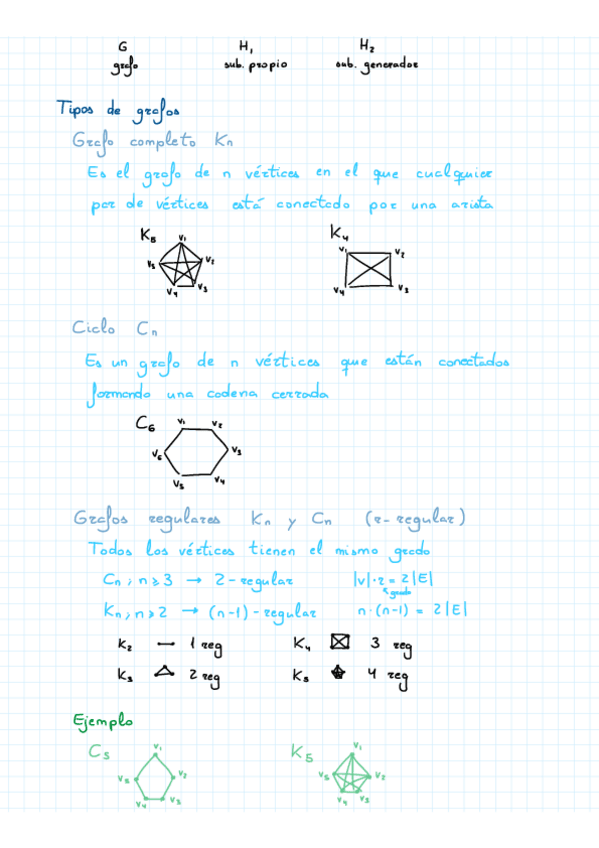 G H₁ H₂
grafo sub. propio sub. generador
Tipos de grafos
Grafo completo Kn
Es el grafo de n vértices en el que cualquier
par de vértices está conectado por una arista
K₅ K₄
v₁ v₂ v₃ v₄ v₅
v₁ v₂ v₃ v₄
Ciclo Cn
Es un grafo de n vértices que están conectados
formando una cadena cerrada
C₆
v₁ v₂ v₃ v₄ v₅ v₆
Grafos regulares Kn y Cn (r-regular)
Todos los vértices tienen el mismo grado
Cn, n≥3 → 2-regular |v|·r = 2|E|
grado
Kn, n≥2 → (n-1)-regular n·(n-1) = 2|E|
K₂ 1 reg K₄ 3 reg
K₃ 2 reg K₅ 4 reg
Ejemplo
C₅ K₅
v₁ v₂ v₃ v₄ v₅
v₁ v₂ v₃ v₄ v₅